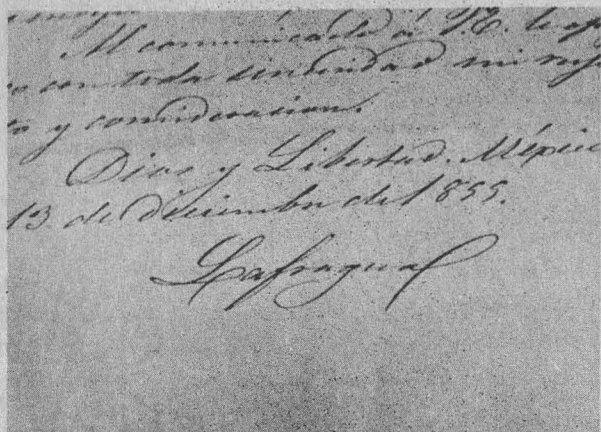 Al comunicarlo á V.E. le
co con toda sinceridad mi
to y consideracion.
Dios y Libertad. Méxic
13 de diciembre de 1855.
Lafragua